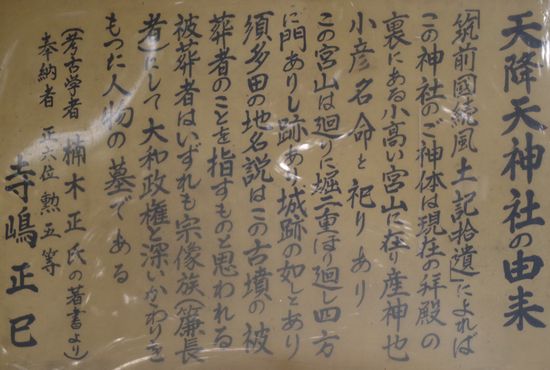 天降天神社の由来
「筑前國続風土記拾遺」によれば
この神社のご神体は現在の拝殿の
裏にある小高い宮山に在り産神也
小彦名命を祀りあり
この宮山は廻りに堀二重ほり廻し四方
に門ありし跡あり城跡の如しとあり
須多田の地名説はこの古墳の被
葬者のことを指すものと思われる
被葬者はいずれも宗像族(豪長
者)にして大和政権と深いかかわりを
もつた人物の墓である
(考古学者 楠木正氏の著書より)
奉納者 正六位 勲五等
寺嶋正已